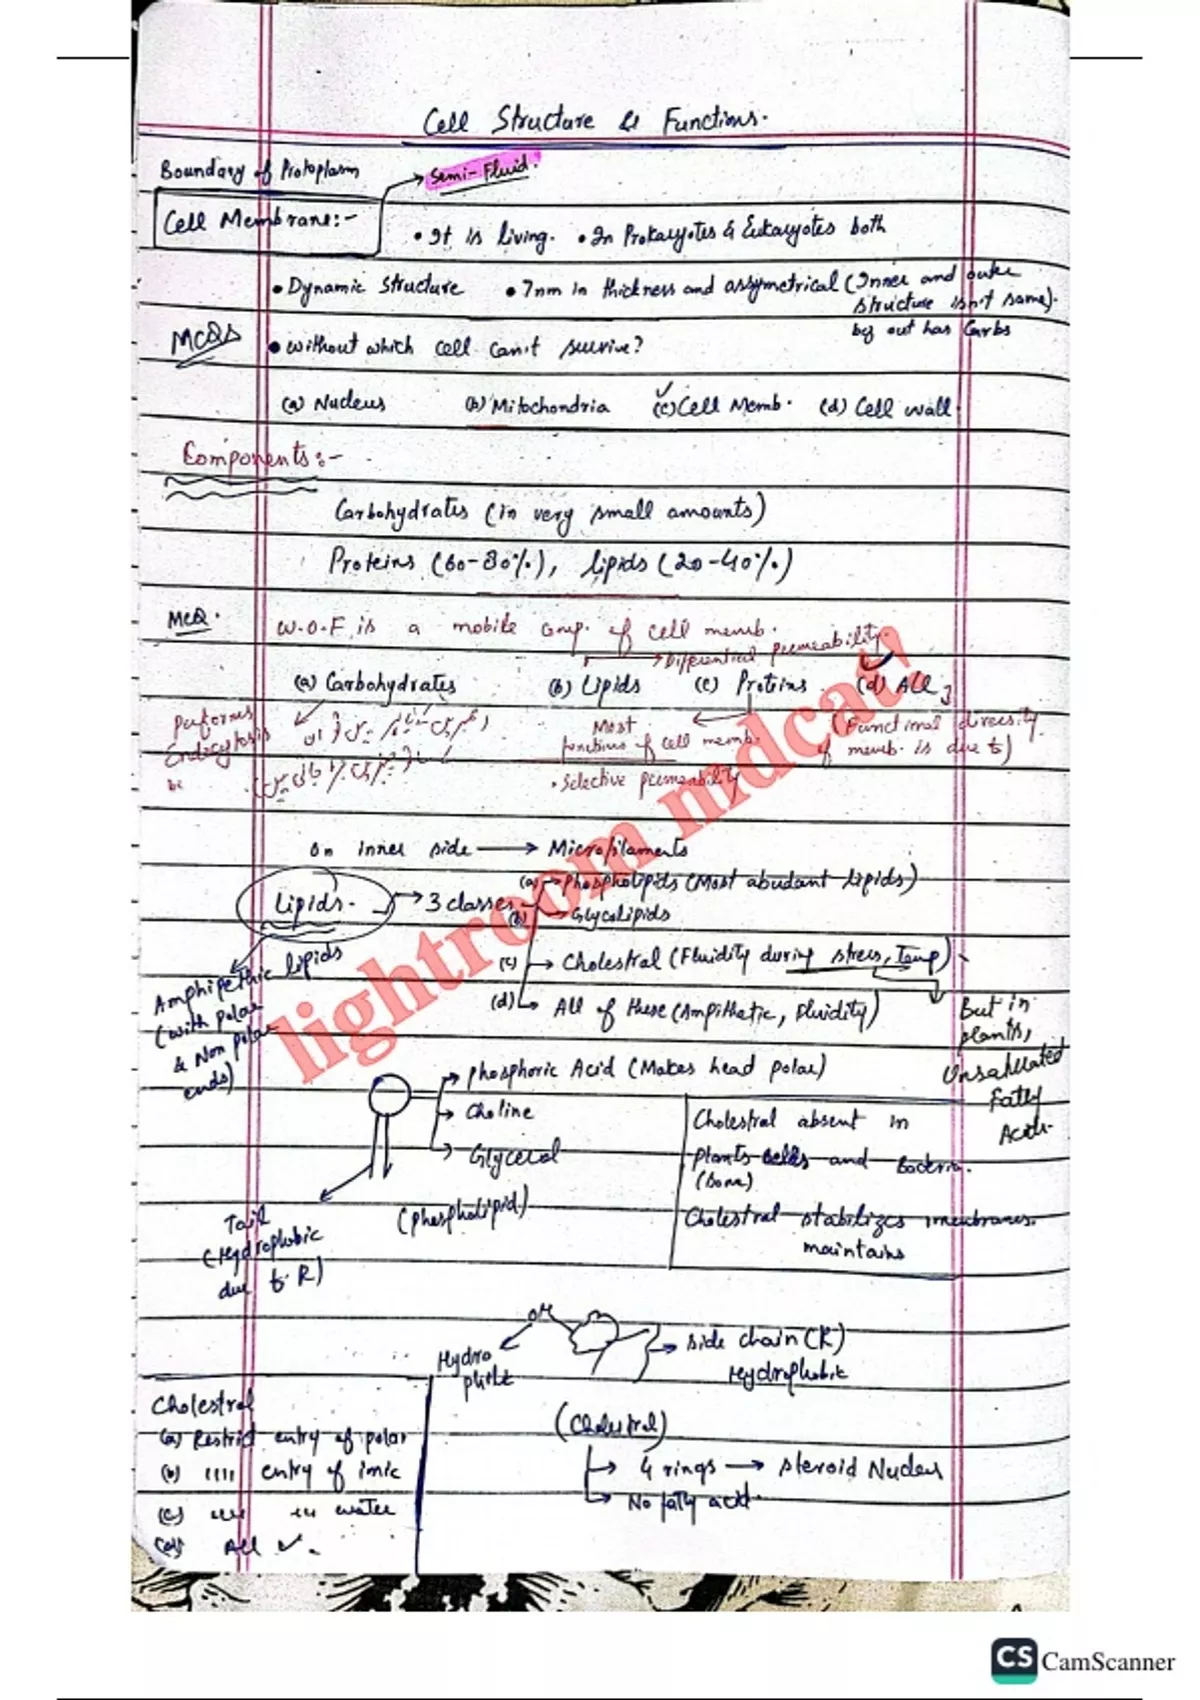 Cell Structure & Functions.
Boundary of Protoplasm
Semi-Fluid.
Cell Membrane:-
• It is living. • In Prokaryotes & Eukaryotes both
• Dynamic structure • 7nm in thickness and assymetrical (Inner and outer
structure isn't same).
by out has Carbs
MCQs
• without which cell can't survive?
(a) Nucleus (b) Mitochondria (c) Cell Memb. (d) Cell wall.
Components:-
Carbohydrates (in very small amounts)
Proteins (60-80%), lipids (20-40%)
MCQ.
W.O.F is a mobile comp. of cell memb.
Differential permeability.
(a) Carbohydrates (b) Lipids (c) Proteins (d) All
Performs
Endocytosis
Most
functions of cell memb.
(Functional diversity
of memb. is due to)
• Selective permeability
on inner side → Microfilaments
Lipids. → 3 classes
(a) → Phospholipids (Most abudant lipids)
(b) → Glycolipids
(c) → Cholestral (Fluidity during stress, Temp).
(d) → All of these (Ampithatic, Fluidity)
But in
plants,
Unsaturated
Fatty
Acid.
Amphipethic lipids
(with polar
& Non polar
ends)
→ Phosphoric Acid (Makes head polar)
→ Choline
→ Glycerol
(Phospholipid)
Tail
(Hydrophobic
due to R)
Cholestral absent in
plants cells and bacteria.
Cholestral stabilizes membranes.
maintains
OH
Hydro
phile
→ side chain (R)
Hydrophobic
(Cholestral)
→ 4 rings → steroid Nucleus
→ No fatty acid.
Cholestral
(a) Restrict entry of polar
(b) '''' entry of ionic
(c) water
(d) All ✓.
lightroom mdcat!
CS CamScanner